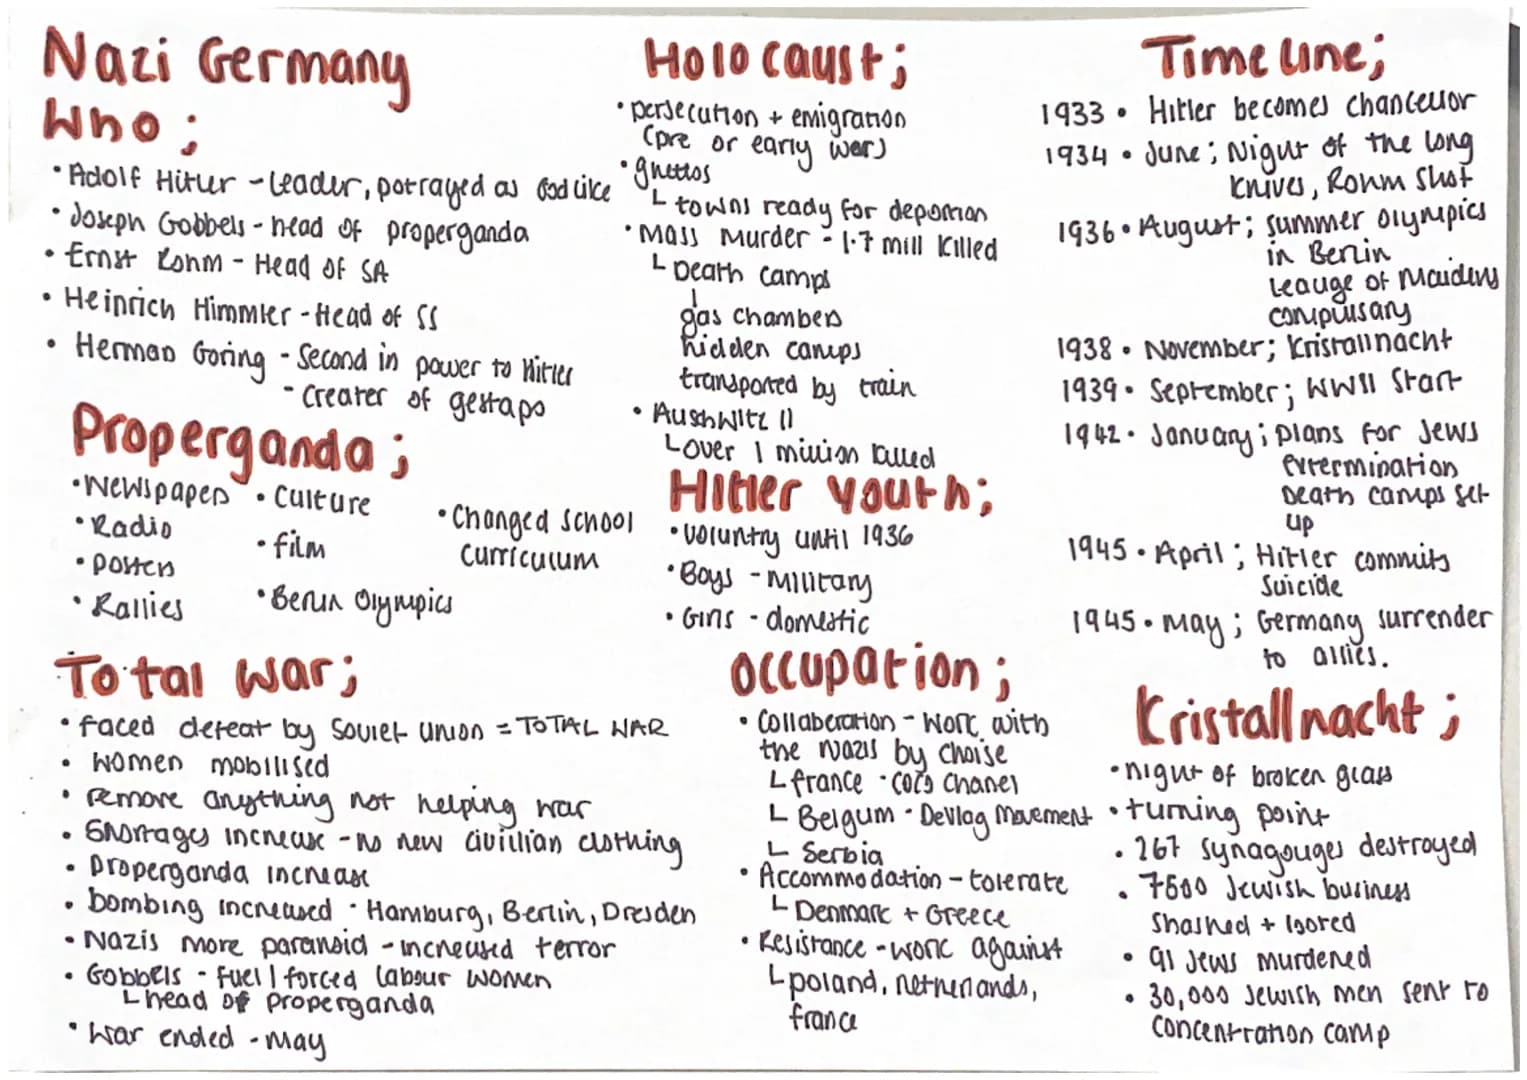 Nazi Germany
Who;
• Adolf Hitler - Leader, potrayed as God like
• Joseph Gobbels - head of properganda
• Ernst Rohm - Head of SA
• Heinrich Himmler - Head of SS
• Herman Goring - Second in power to Hitler
- Creater of gestapo
Properganda;
• Newspapers
• Radio
• posters
• Rallies
• Culture
• film
• Berlin Olympics
• Changed School
curriculum
Total war;
• faced defeat by Soviet Union = TOTAL WAR
• Women mobilised
• remove anything not helping war
• Shortages increase - no new civillian clothing
• properganda increase
• bombing increased • Hamburg, Berlin, Dresden
• Nazis more paranoid - increased terror
• Gobbels - fuel / forced labour women
└ head of properganda
• War ended - May
Holocaust;
• persecution + emigration
(pre or early war)
• ghettos
└ towns ready for deportion
• Mass Murder - 1.7 mill killed
└ Death camps
gas chambers
hidden camps
transported by train
• Aushwitz II
└ over 1 million killed
Hitler youth;
• voluntry until 1936
• Boys - Military
• Girls - domestic
Occupation;
• Collaberation - Work with
the nazis by choise
└ france • Coco Chanel
└ Belgum • Devlag Movement
└ Serbia
• Accommodation - tolerate
└ Denmark + Greece
• Resistance - work against
└ poland, netherlands,
france
Timeline;
1933 • Hitler becomes chancellor
1934 • June; Night of the long
knives, Rohm Shot
1936 • August; summer olympics
in Berlin
Leauge of Maidens
compulsary
1938 • November; Kristallnacht
1939 • September; WWII Start
1942 • January; plans for Jews
extermination
Death camps set
up
1945 • April; Hitler commits
Suicide
1945 • may; Germany surrender
to allies.
Kristallnacht;
• night of broken glass
• turning point
• 267 synagouges destroyed
• 7500 Jewish business
Smashed + looted
• 91 Jews murdered
• 30,000 Jewish men sent to
concentration camp